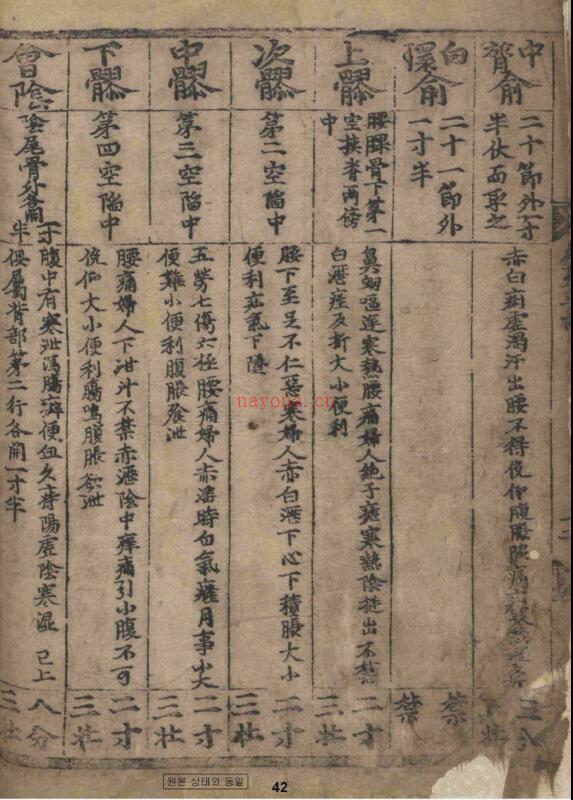 中膂俞
二十節外一寸
半伏而取之
赤白痢虛渴汗出腰不得俛仰腹脹脇痛
三分
白環俞
二十一節外
一寸半
禁
禁
上髎
腰髁骨下第一
空挾脊兩傍
中
鼻衂嘔逆寒熱腰痛婦人絶子瘧寒熱陰挺出不禁
白瀝痓反折大小便利
二寸
三壯
次髎
第二空陷中
腰下至足不仁惡寒婦人赤白瀝下心下積脹大小
便利疝氣下墜
二寸
三壯
中髎
第三空陷中
五勞七傷六極腰痛婦人赤淫時白氣癃月事少大
便難小便利腹脹飧泄
二寸
三壯
下髎
第四空陷中
腰痛婦人下泔汁不禁赤瀝陰中痒痛引小腹不可
俛仰大小便利腸鳴腹脹欲泄
二寸
三壯
會陰
陰尾骨外各開一寸
半
腹中有寒泄瀉腸癖便血久痔陽虛陰寒濕 已上
俱屬背部第二行各開一寸半
八分
三壯
nayona.cn
원본 상태와 동일
42